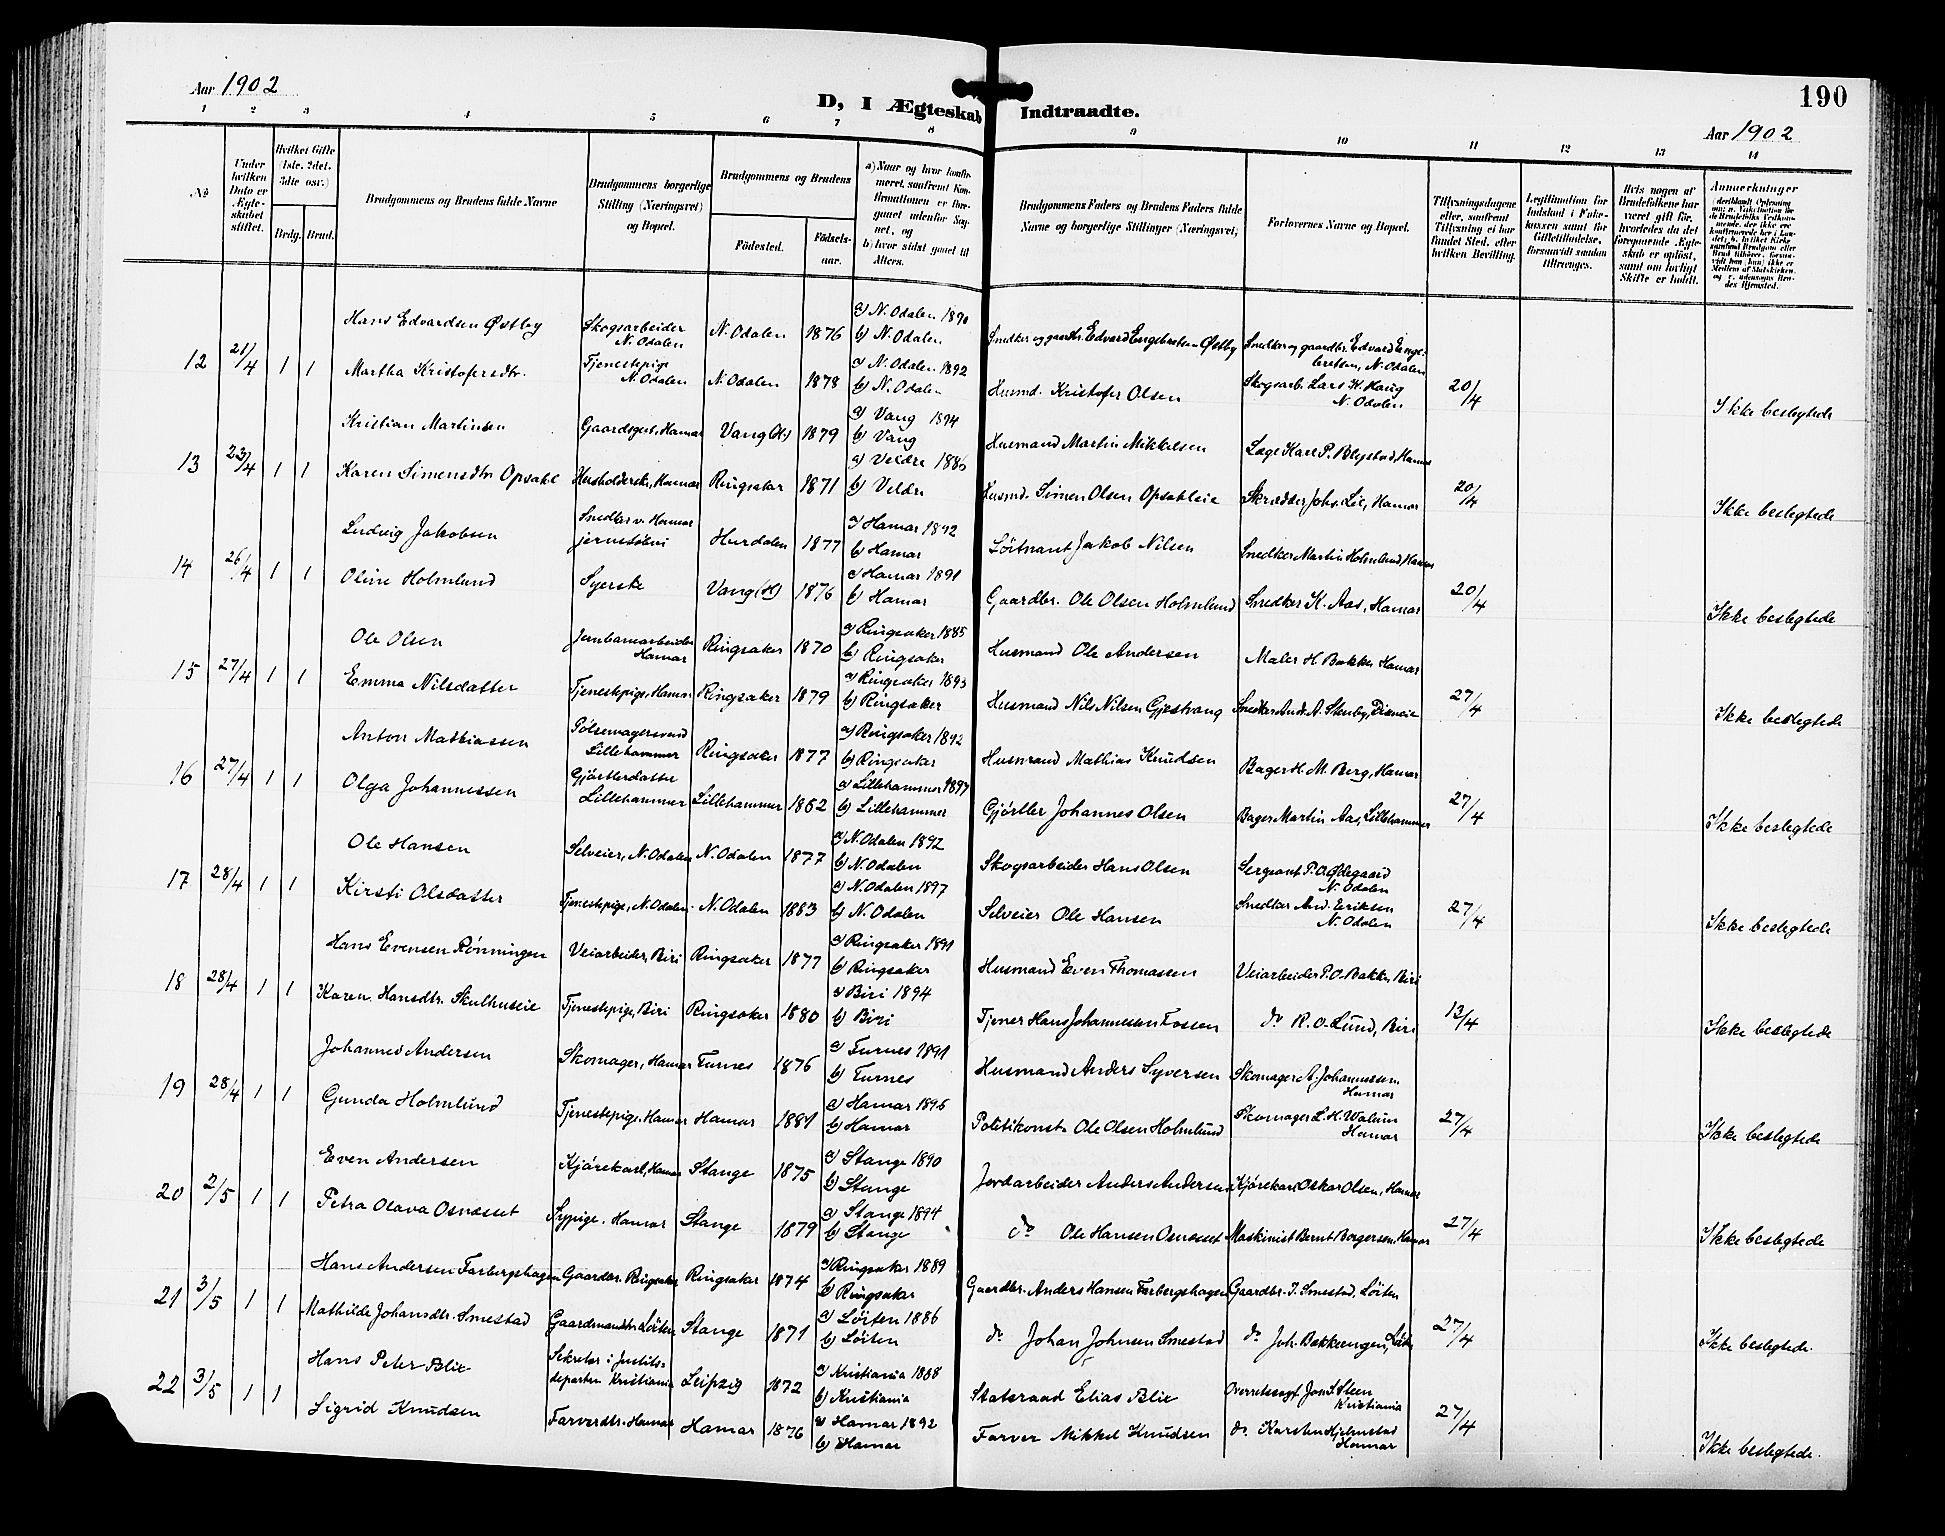 Aar 1902
D, I Ægteskab Indtraadte.
190
Aar 1902
1 2 3 4 5 6 7 8 9 10 11 12 13 14
No
Under hvilken Dato er Ægteskabet stiftet.
Hvilket Gifte (1ste, 2det, 3die osv.)
Brdg. Brud.
Brudgommens og Brudens fulde Navne
Brudgommens borgerlige Stilling (Næringsvei) og Bopæl.
Brudgommens og Brudens
Fødested. Fødselsaar.
a) Naar og hvor konfirmeret, saafremt Konfirmationen er foregaaet udenfor Sognet, og
b) hvor sidst gaaet til Alters.
Brudgommens Faders og Brudens Faders fulde Navne og borgerlige Stillinger (Næringsvei)
Forlovernes Navne og Bopæl.
Tillysningsdagene eller, saafremt Tillysning ei har fundet Sted, efter hvilken Bevilling.
Legitimation for Indskud i Enkekassen samt for Giftetilladelse, forsaavidt saadan tiltrænges.
Hvis nogen af Brudefolkene har været gift før, hvorledes da det foregaaende Ægteskab er opløst, samt om lovligt Skifte er holdt.
Anmerkninger
12 21/4 1 1
Hans Edvardsen Østby Skogsarbeider N. Odalen N. Odalen 1876 a) N. Odalen 1890 b) N. Odalen Snedker og gaardbr. Edvard Engebretsen Østby Snedker og gaardbr. Edvard Engebretsen, N. Odalen
Martha Kristofersdtr. Tjenestepige N. Odalen N. Odalen 1878 a) N. Odalen 1892 b) N. Odalen Husmd. Kristofer Olsen Skogsarb. Lars H. Haug N. Odalen 20/4 Ikke beslegtede
13 23/4 1 1
Kristian Martinsen Gaardsgut, Hamar Vang (H.) 1879 a) Vang 1894 b) Vang Husmand Martin Mikkelsen Læge Karl P. Blystad, Hamar
Karen Simensdtr. Opsahl Husholderske, Hamar Ringsaker 1871 a) Veldre 1886 b) Veldre Husmd. Simen Olsen Opsahleie Skrædder Johs. Lie, Hamar 20/4 Ikke beslegtede
14 26/4 1 1
Ludvig Jakobsen Snedker v. Hamar jernstøberi Hurdalen 1877 a) Hamar 1892 b) Hamar Löitnant Jakob Nilsen Snedker Martin Holmlund, Hamar
Oline Holmlund Syerske Vang (H) 1876 a) Hamar 1891 b) Hamar Gaardbr. Ole Olsen Holmlund Snedker K. Aas, Hamar 20/4 Ikke beslegtede
15 27/4 1 1
Ole Olsen Jernbanearbeider Hamar Ringsaker 1870 a) Ringsaker 1885 b) Ringsaker Husmand Ole Andersen Maler H. Bakke, Hamar
Emma Nilsdatter Tjenestepige, Hamar Ringsaker 1879 a) Ringsaker 1893 b) Ringsaker Husmand Nils Nilsen Gjestvang Snedker Andr. A. Stenby, 27/4 Ikke beslegtede
16 27/4 1 1
Anton Mathiassen Pölsemagersvend Lillehammer Ringsaker 1877 a) Ringsaker 1892 b) Ringsaker Husmand Mathias Knudsen Bager H. M. Berg, Hamar
Olga Johannessen Gjörtlerdatter Lillehammer Lillehammer 1882 a) Lillehammer 1897 b) Lillehammer Gjörtler Johannes Olsen Bager Martin Aas, Lillehammer 27/4 Ikke beslegtede
17 28/4 1 1
Ole Hansen Selveier, N. Odalen N. Odalen 1877 a) N. Odalen 1892 b) N. Odalen Skogsarbeider Hans Olsen Sergeant P. O. Ødegaard N. Odalen
Kirsti Olsdatter Tjenestepige, N. Odalen N. Odalen 1883 a) N. Odalen 1897 b) N. Odalen Selveier Ole Hansen Snedker And. Eriksen N. Odalen 27/4 Ikke beslegtede
18 28/4 1 1
Hans Evensen Rønningen Veiarbeider, Biri Ringsaker 1877 a) Ringsaker 1891 b) Ringsaker Husmand Even Thomassen Veiarbeider P. O. Bakke, Biri
Karen Hansdtr. Skulhuseie Tjenestepige, Biri Ringsaker 1880 a) Biri 1894 b) Biri Tjener Hans Johannessen Fossen do R. O. Lund, Biri 13/4 Ikke beslegtede
19 28/4 1 1
Johannes Andersen Skomager, Hamar Furnes 1876 a) Furnes 1891 b) Furnes Husmand Anders Syversen Skomager A. Johannessen Hamar
Gunda Holmlund Tjenestepige, Hamar Hamar 1881 a) Hamar 1896 b) Hamar Politikonst. Ole Olsen Holmlund Skomager L. H. Walum Hamar 27/4 Ikke beslegtede
20 2/5 1 1
Even Andersen Kjörekarl, Hamar Stange 1875 a) Stange 1890 b) Stange Jordarbeider Anders Andersen Kjörekarl Oskar Olsen, Hamar
Petra Olava Osnæsset Sypige, Hamar Stange 1879 a) Stange 1894 b) Stange do Ole Hansen Osnæsset Maskinist Bernt Borgersen, Hamar 27/4 Ikke beslegtede
21 3/5 1 1
Hans Andersen Farbergshagen Gaardbr. Ringsaker Ringsaker 1874 a) Ringsaker 1889 b) Ringsaker Gaardbr. Anders Hansen Farbergshagen Gaardbr. I. Smestad, Löiten
Mathilde Johansdtr. Smestad Gaardmandsdtr. Löiten Stange 1871 a) Löiten 1886 b) Löiten do Johan Johnsen Smestad do Joh. Bakkeengen, Löiten 27/4 Ikke beslegtede.
22 3/5 1 1
Hans Peter Blix Sekretær i Justitsdeparten Kristiania Leipzig 1872 a) Kristiania 1888 b) Kristiania Statsraad Elias Blix Overretssagf. Jon S. Steen Kristiania
Sigrid Knudsen Farverdtr. Hamar Hamar 1876 a) Hamar 1892 b) Hamar Farver Mikkel Knudsen do. Karsten Hjelmstad Hamar 27/4 Ikke beslegtede.